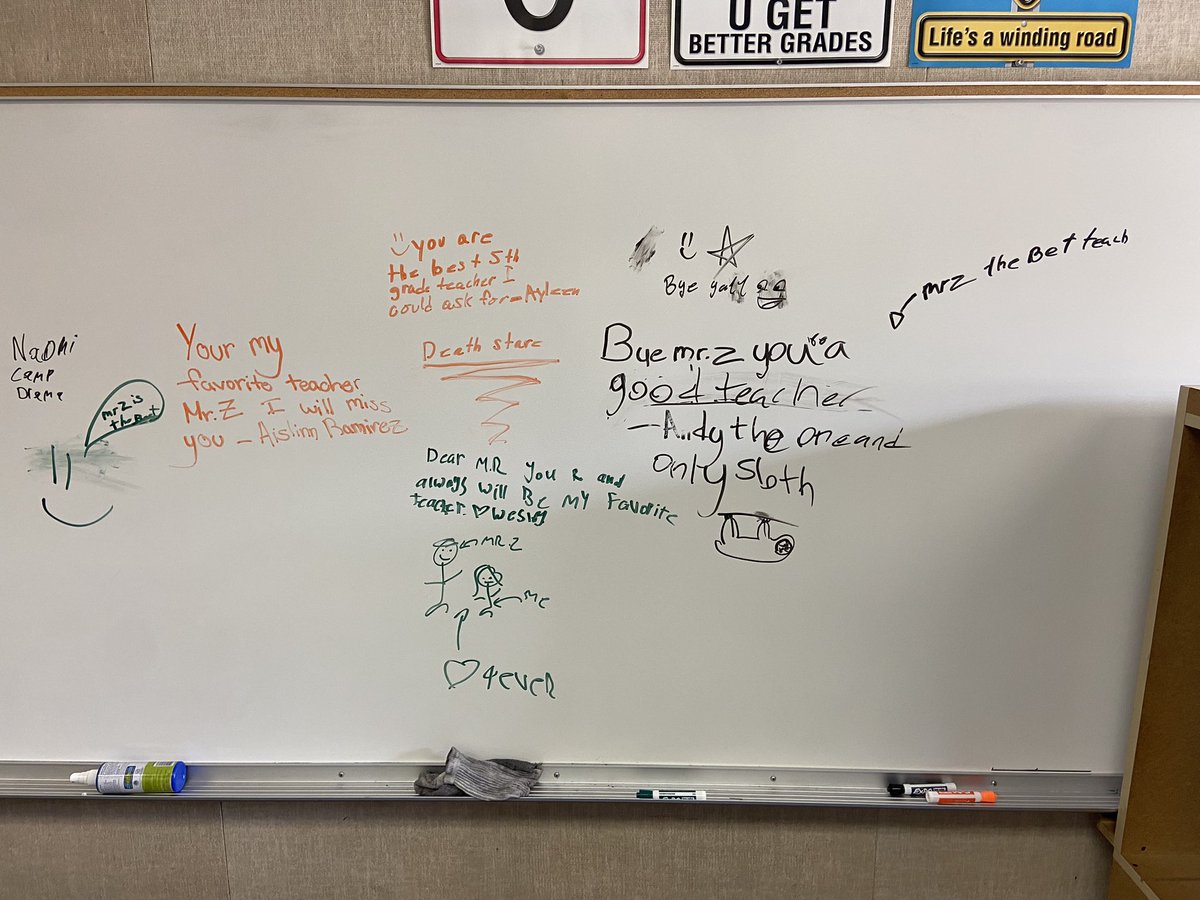 U GET
BETTER GRADES
Life's a winding road
Naomi
Camp
Drama
mr Z is
the Best
Your my
favorite teacher
Mr. Z I will miss
you - Aislinn Ramirez
you are
the best 5th
grade teacher I
could ask for - Ayleen
Death stare
Dear M.R you R and
always will BE MY Favorite
teacher. ♡
MR Z
ME
♡ 4EVER
Bye yall
Bye mr. z you're a
good teacher
- Andy the one and
only sloth
mr Z the Bet teach